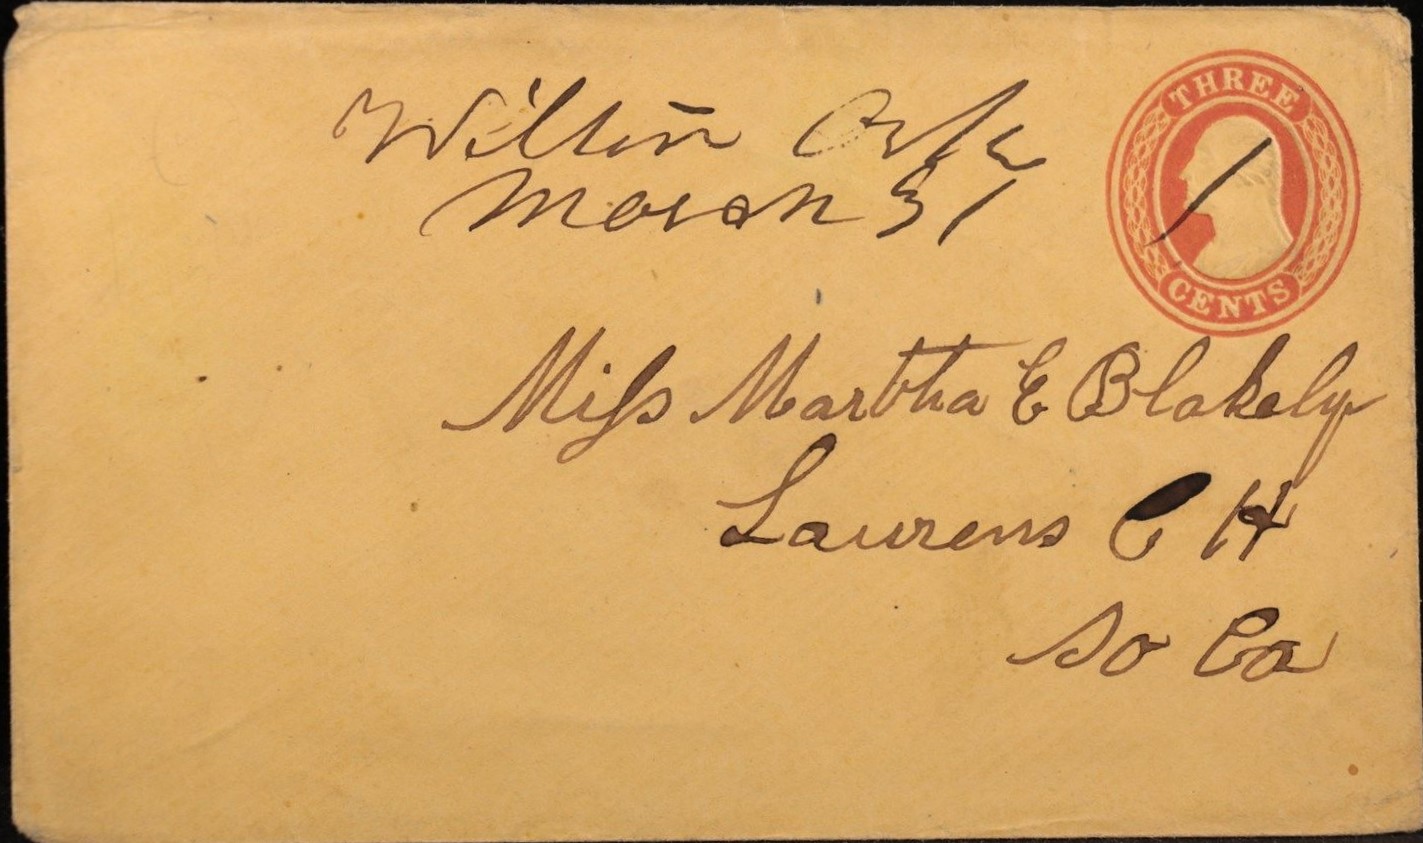 Wilton Arks
March 31
THREE
CENTS
Miss Martha E Blakely
Laurens C H
So Ca